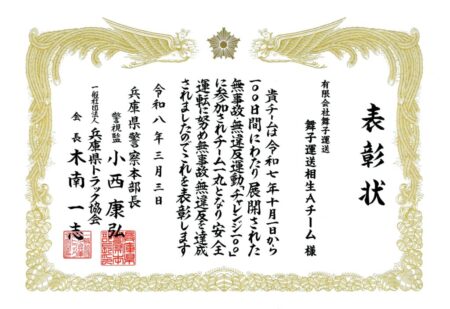 表彰状
有限会社舞子運送
舞子運送相生Aチーム 様
貴チームは令和七年十月一日から
一〇〇日間にわたり展開された
無事故・無違反運動「チャレンジ一〇〇」
に参加されチーム一丸となり安全
運転に努め無事故・無違反を達成
されましたのでこれを表彰します
令和八年三月三日
兵庫県警察本部長
警視監 小西康弘
一般社団法人 兵庫県トラック協会
会長 木南一志